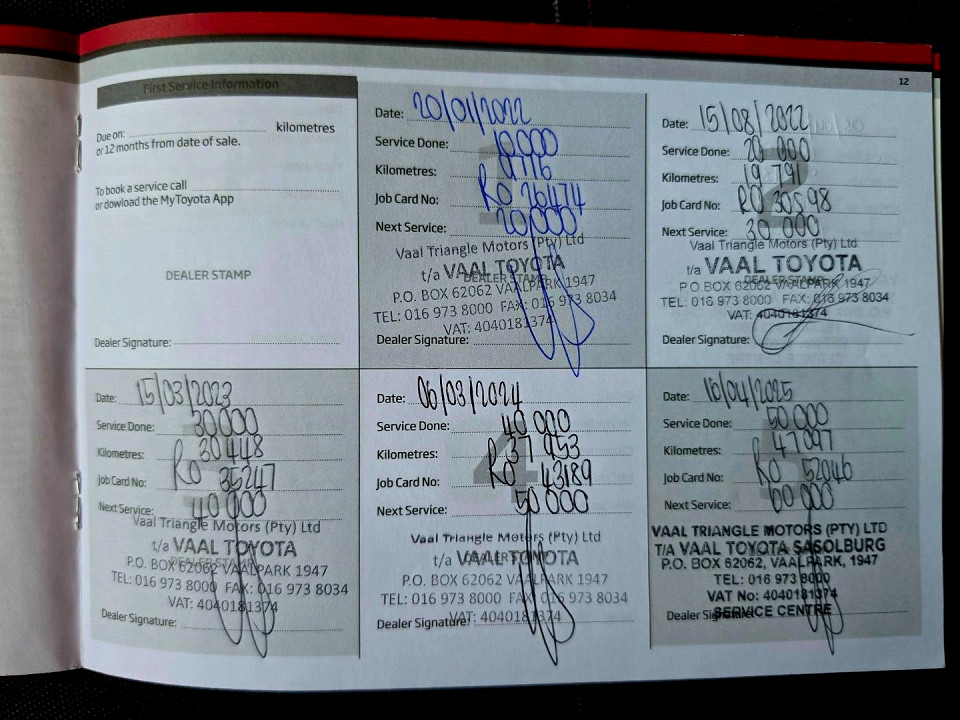 12
First Service Information
Due on: kilometres
or 12 months from date of sale.
To book a service call
or dowload the MyToyota App
DEALER STAMP
Dealer Signature:
Date: 20/01/2022
Service Done: 10,000
Kilometres: 9776
Job Card No: RO 26474
Next Service: 20,000
Vaal Triangle Motors (Pty) Ltd
t/a VAAL TOYOTA
DEALER STAMP
P.O. BOX 62062 VAALPARK 1947
TEL: 016 973 8000 FAX: 016 973 8034
VAT: 4040181374
Dealer Signature:
Date: 15/08/2022
Service Done: 20 000
Kilometres: 19 791
Job Card No: RO 30598
Next Service: 30 000
Vaal Triangle Motors (Pty) Ltd
t/a VAAL TOYOTA
DEALER STAMP
P.O BOX 62062 VAALPARK 1947
TEL: 016 973 8000 FAX: 016 973 8034
VAT: 4040181374
Dealer Signature:
Date: 15/03/2023
Service Done: 30000
Kilometres: 30448
Job Card No: RO 35247
Next Service: 40 000
Vaal Triangle Motors (Pty) Ltd
t/a VAAL TOYOTA
DEALER STAMP
P.O. BOX 62062 VAALPARK 1947
TEL: 016 973 8000 FAX: 016 973 8034
VAT: 4040181374
Dealer Signature:
Date: 06/03/2024
Service Done: 40 000
4
Kilometres: 37 953
Job Card No: RO 43189
Next Service: 50 000
Vaal Triangle Motors (Pty) Ltd
t/a VAAL TOYOTA
DEALER STAMP
P.O. BOX 62062 VAALPARK 1947
TEL: 016 973 8000 FAX: 016 973 8034
VAT: 4040181374
Dealer Signature:
Date: 16/04/2025
Service Done: 50 000
Kilometres: 47 097
Job Card No: RO 52046
Next Service: 60 000
VAAL TRIANGLE MOTORS (PTY) LTD
T/A VAAL TOYOTA SASOLBURG
P.O. BOX 62062, VAALPARK, 1947
TEL: 016 973 8000
VAT No: 4040181374
SERVICE CENTRE
Dealer Signature: